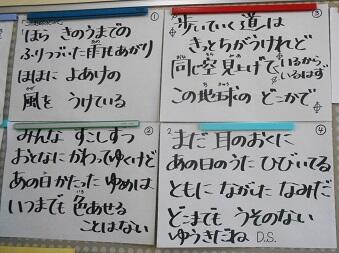 ①
ほら きのうまでの
ふりつづいた雨もあがり
ほほに よあけの
風を うけている
②
みんな すこしずつ
おとなに かわってゆくけど
あの日かたった ゆめは
いつまでも 色あせる
ことはない
③
歩いていく道は
きっとちがうけれど
同じ空見上げているから
いるはず
この地球の どこかで
2
④
まだ 耳のおくに
あの日のうた ひびいてる
ともに ながした なみだ
どこまでも うそのない
ゆうきだね D.S.